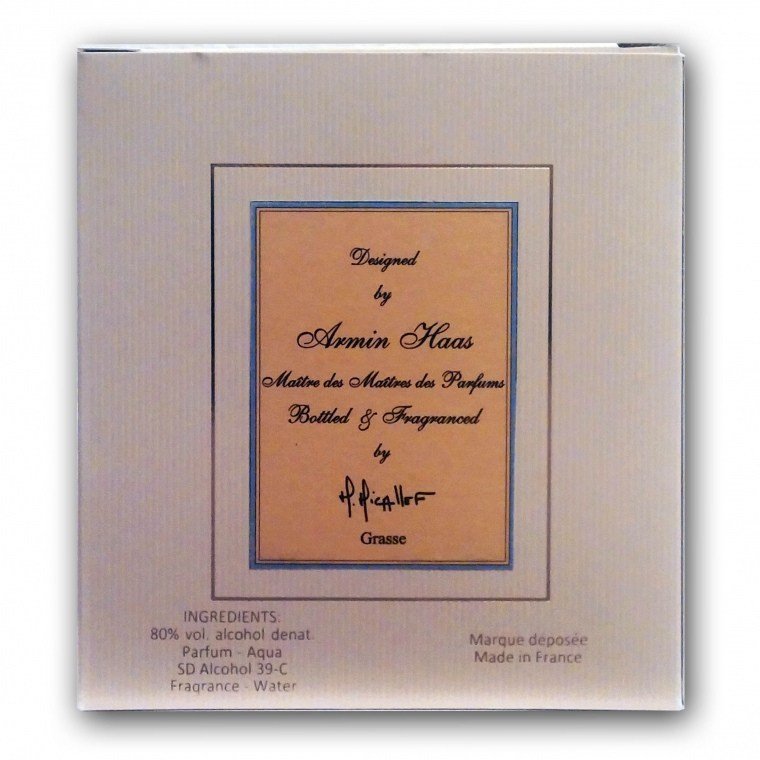 Designed
by
Armin Haas
Maître des Maîtres des Parfums
Bottled & Fragranced
by
M. Micallef
Grasse
INGREDIENTS:
80% vol. alcohol denat.
Parfum - Aqua
SD Alcohol 39-C
Fragrance - Water
Marque deposée
Made in France